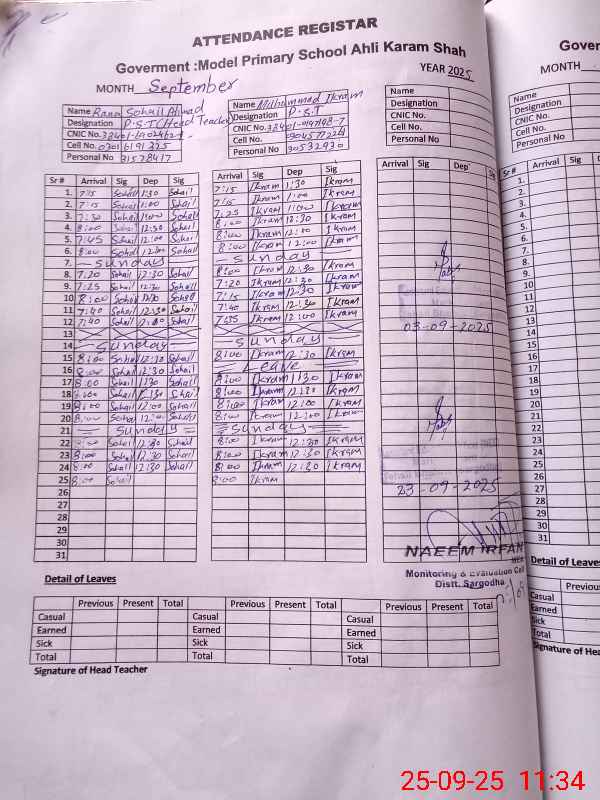 ATTENDANCE REGISTAR
Goverment :Model Primary School Ahli Karam Shah
MONTH September YEAR 2025
Name Rana Sohail Ahmad
Designation P.S.T (Head Teacher)
CNIC No.
Cell No. 0301 6191325
Personal No 31578417
Name Muhammad Ikram
Designation P.S.T
CNIC No.
Cell No.
Personal No 30532930
Name
Designation
CNIC No.
Cell No.
Personal No
Sr # Arrival Sig Dep Sig Arrival Sig Dep Sig Arrival Sig Dep
1. 7:15 Sohail 1:30 Sohail 7:15 Ikram 1:30 Ikram
2. 7:15 Sohail 1:00 Sohail 7:15 Ikram 1:00 Ikram
3. 7:30 Sohail 1:00 Sohail 7:25 Ikram 1:00 Ikram
4. 8:00 Sohail 12:30 Sohail 8:00 Ikram 12:30 Ikram
5. 7:45 Sohail 12:00 Sohail 8:00 Ikram 12:00 Ikram
6. 8:00 Sohail 12:00 Sohail 8:00 Ikram 12:00 Ikram
7. Sunday Sunday
8. 7:20 Sohail 12:30 Sohail 8:00 Ikram 12:30 Ikram
9. 7:25 Sohail 12:30 Sohail 7:20 Ikram 12:30 Ikram
10 8:00 Sohail 12:30 Sohail 7:15 Ikram 12:30 Ikram
11 7:40 Sohail 12:30 Sohail 7:40 Ikram 12:30 Ikram
12 7:40 Sohail Sohail 7:35 Ikram 12:00 Ikram
13
14 Sunday Sunday
15 8:00 Sohail 12:30 Sohail 8:00 Ikram 12:30 Ikram
16 8:00 Sohail 12:30 Sohail Leave
17 8:00 Sohail 1:30 Sohail 8:00 Ikram 1:30 Ikram
18 8:00 Sohail Sohail 8:00 Ikram 12:30 Ikram
19 8:00 Sohail 12:00 Sohail 8:00 Ikram 12:00 Ikram
20 8:00 Sohail 12:00 Sohail 8:00 Ikram 12:00 Ikram
21 Sunday Sunday
22 8:00 Sohail 12:30 Sohail 8:00 Ikram 12:30 Ikram
23 8:00 Sohail 12:30 Sohail 8:00 Ikram 12:30 Ikram
24 8:00 Sohail 12:30 Sohail 8:00 Ikram 12:30 Ikram
25 8:00 Sohail 8:00 Ikram
26
27
28
29
30
31
03-09-2025
23-09-2025
NAEEM IRFAN
MEA
Monitoring & Evaluation Cell
Distt. Sargodha
Detail of Leaves
Previous Present Total Previous Present Total Previous Present Total
Casual Casual Casual
Earned Earned Earned
Sick Sick Sick
Total Total Total
Signature of Head Teacher
Gover
MONTH
Name
Designation
CNIC No.
Cell No.
Personal No
Sr # Arrival Sig
1.
2.
3.
4.
5.
6.
7.
8.
9.
10
11
12
13
14
15
16
17
18
19
20
21
22
23
24
25
26
27
28
29
30
31
Detail of Leaves
Previous
Casual
Earned
Sick
Total
Signature of Hea
25-09-25 11:34